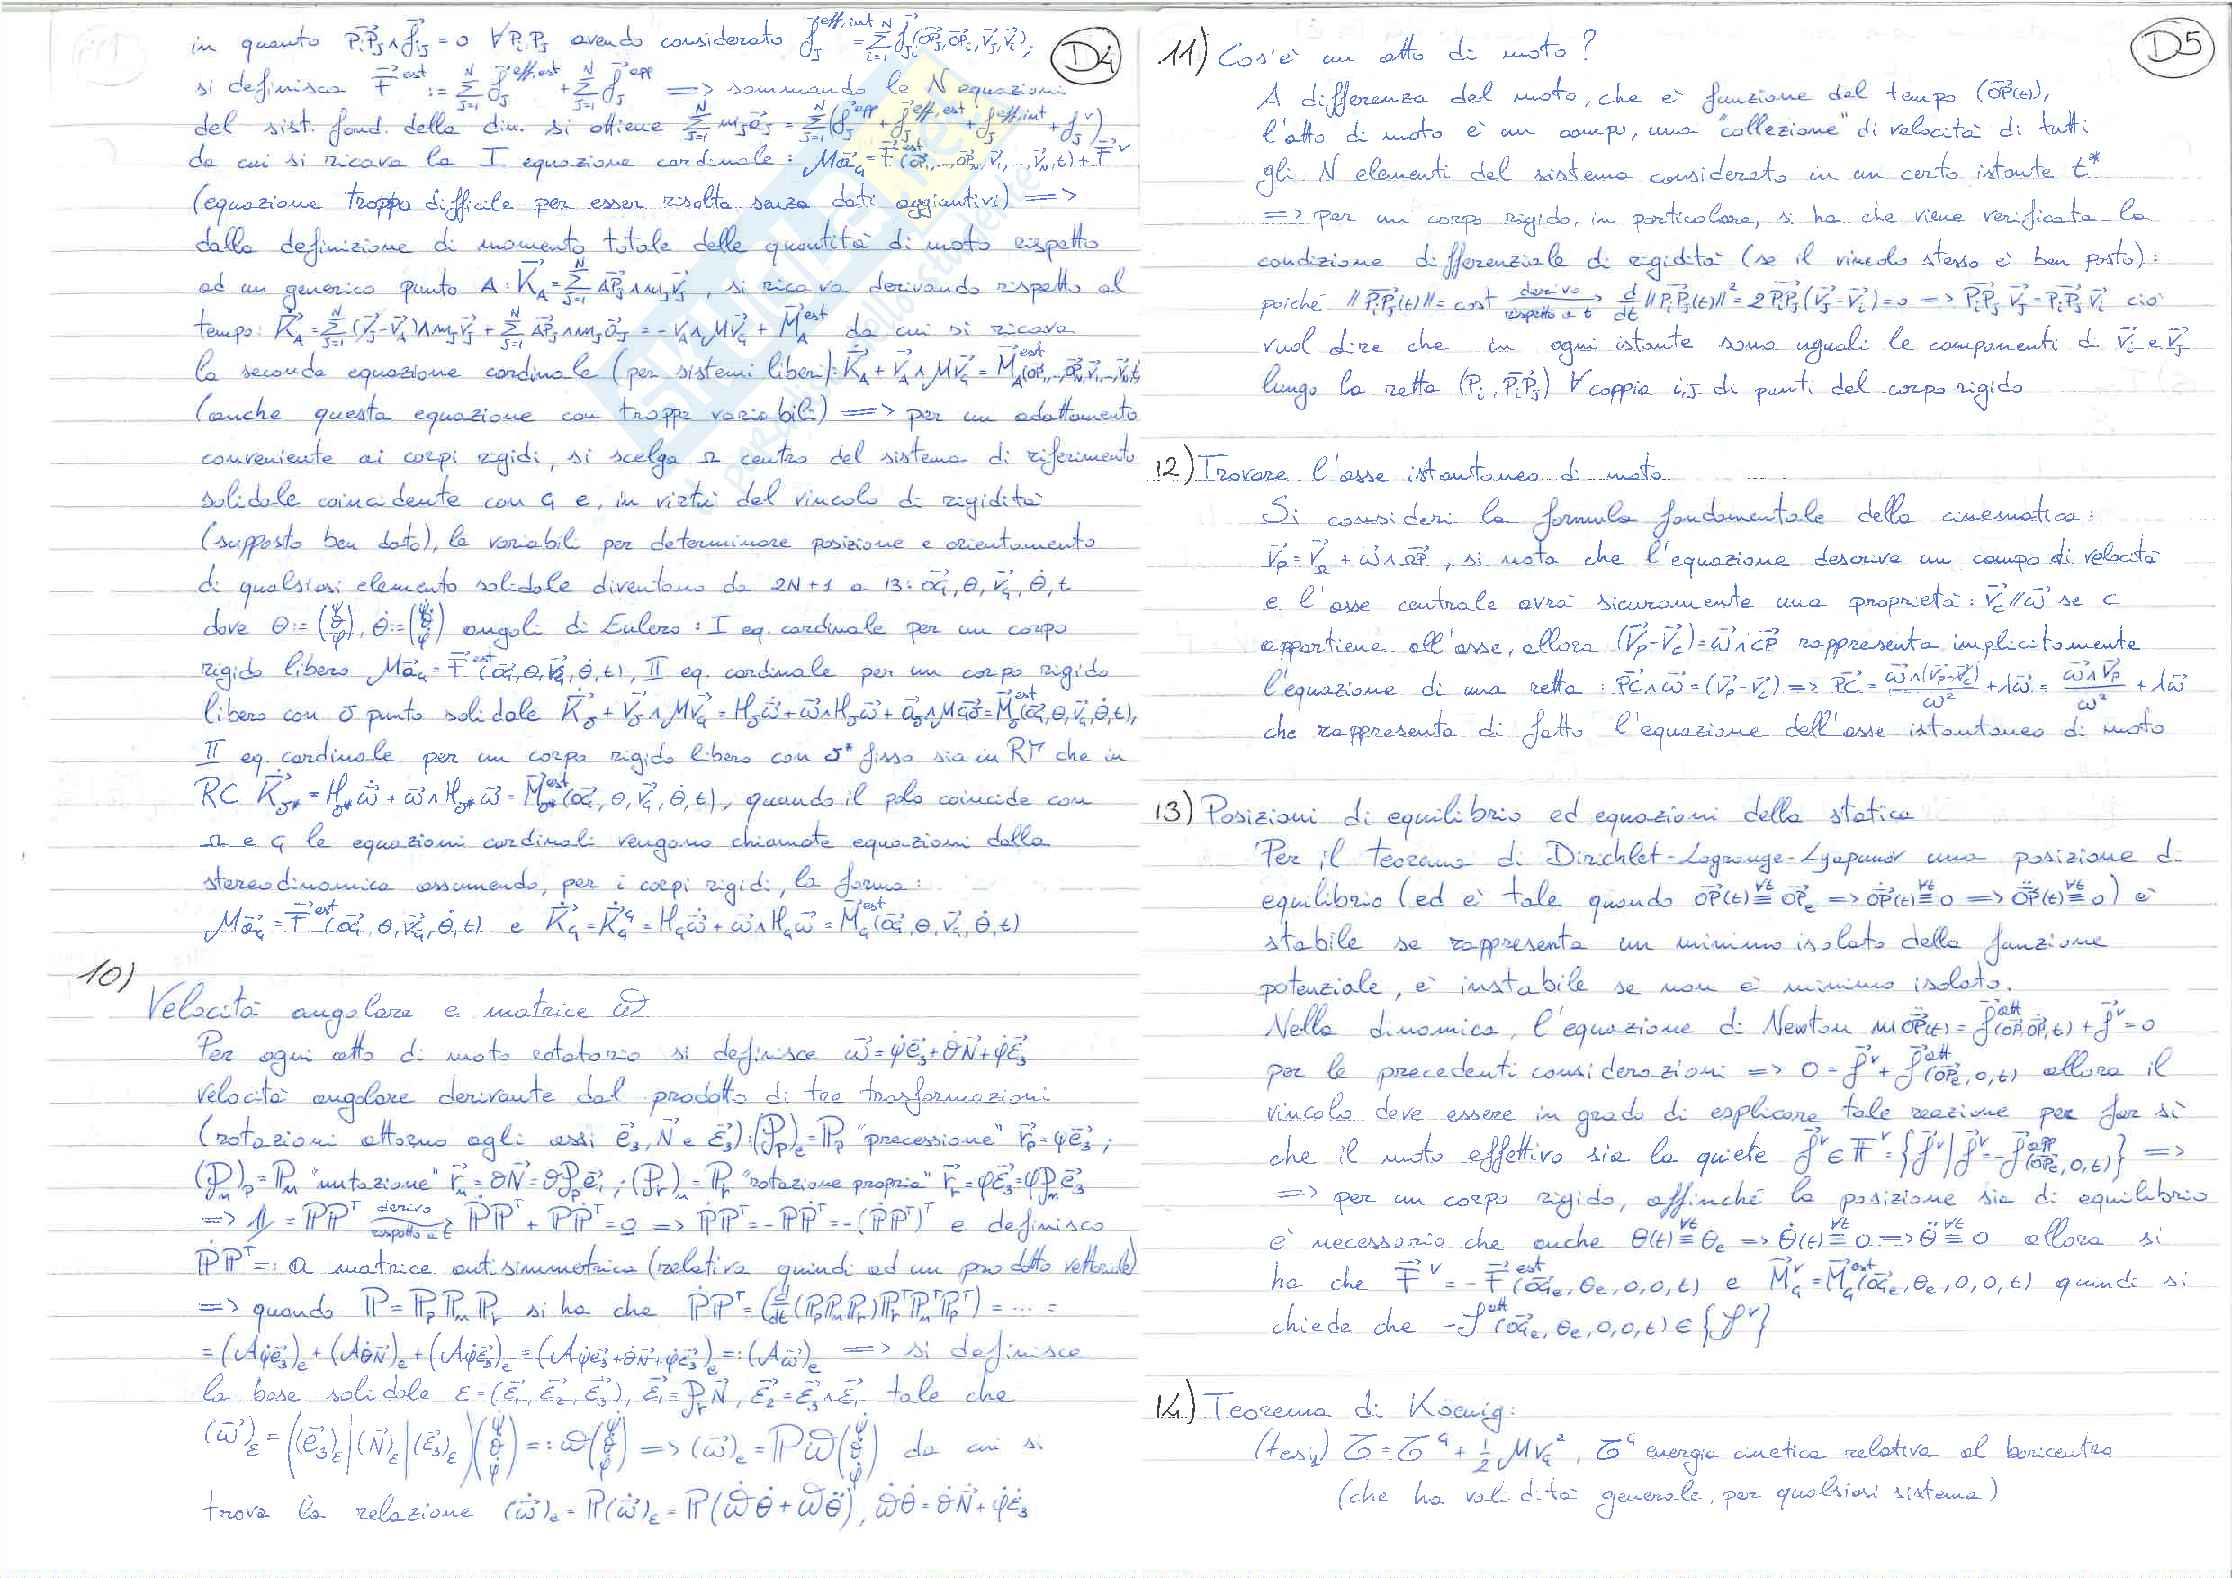 D4
in quanto P⃗iPj ∧ f⃗ij = 0 ∀ Pi Pj avendo considerato f⃗j^eff,int = Σ_{i=1}^N f⃗ji(OP⃗j, OP⃗i, V⃗j, V⃗i);
si definisca F⃗^est := Σ_{j=1}^N f⃗j^eff,est + Σ_{j=1}^N f⃗j^app => sommando le N equazioni
del sist. fond. della din. si ottiene Σ_{j=1}^N mj a⃗j = Σ_{j=1}^N (f⃗j^app + f⃗j^eff,est + f⃗j^eff,int + f⃗j^v)
da cui si ricava la I equazione cardinale: M a⃗G = F⃗^est(OP⃗1,…,OP⃗N, V⃗1,…,V⃗N, t) + F⃗^v
(equazione troppo difficile per esser risolta senza dati aggiuntivi) =>
dalla definizione di momento totale delle quantità di moto rispetto
ad un generico punto A: K⃗A = Σ_{j=1}^N AP⃗j ∧ mj V⃗j, si ricava derivando rispetto al
tempo: K⃗̇A = Σ_{j=1}^N (V⃗j - V⃗A) ∧ mj V⃗j + Σ_{j=1}^N AP⃗j ∧ mj a⃗j = - V⃗A ∧ M V⃗G + M⃗A^est da cui si ricava
la seconda equazione cardinale (per sistemi liberi): K⃗̇A + V⃗A ∧ M V⃗G = M⃗A^est(OP⃗1,…,OP⃗N, V⃗1,…,V⃗N, t)
(anche questa equazione con troppe variabili) => per un adattamento
conveniente ai corpi rigidi, si scelga Ω centro del sistema di riferimento
solidale coincidente con G e, in virtù del vincolo di rigidità
(supposto ben dato), le variabili per determinare posizione e orientamento
di qualsiasi elemento solidale diventano da 2N+1 a 13: OG⃗, θ, V⃗G, θ̇, t
dove θ := (ψ ϑ φ), θ̇ := (ψ̇ ϑ̇ φ̇) angoli di Eulero: I eq. cardinale per un corpo
rigido libero M a⃗G = F⃗^est(OG⃗, θ, V⃗G, θ̇, t), II eq. cardinale per un corpo rigido
libero con σ punto solidale K⃗̇σ + V⃗σ ∧ M V⃗G = Hσ ω⃗̇ + ω⃗ ∧ Hσ ω⃗ + a⃗σ ∧ M Gσ⃗ = M⃗σ^est(OG⃗, θ, V⃗G, θ̇, t),
II eq. cardinale per un corpo rigido libero con σ* fisso sia in RT che in
RC K⃗̇σ* = Hσ* ω⃗̇ + ω⃗ ∧ Hσ* ω⃗ = M⃗σ*^est(OG⃗, θ, V⃗G, θ̇, t), quando il polo coincide con
Ω e G le equazioni cardinali vengono chiamate equazioni della
stereodinamica assumendo, per i corpi rigidi, la forma:
M a⃗G = F⃗^est(OG⃗, θ, V⃗G, θ̇, t) e K⃗̇G = K⃗̇G^G = HG ω⃗̇ + ω⃗ ∧ HG ω⃗ = M⃗G^est(OG⃗, θ, V⃗G, θ̇, t)
10)
Velocità angolare e matrice ω̂
Per ogni atto di moto rotatorio si definisce ω⃗ = ψ̇ e⃗3 + ϑ̇ N⃗ + φ̇ ε⃗3
velocità angolare derivante dal prodotto di tre trasformazioni
(rotazioni attorno agli assi e⃗3, N⃗ e ε⃗3): (Pp)e = ℙp "precessione" r⃗p = ψ e⃗3;
(Pn)p = ℙn "nutazione" r⃗n = ϑ N⃗ = ϑ Pp e⃗1; (Pr)n = ℙr "rotazione propria" r⃗r = φ ε⃗3 = φ Pn e⃗3
=> 𝟙 = ℙℙ^T derivo rispetto a t ℙ̇ℙ^T + ℙℙ̇^T = 0 => ℙ̇ℙ^T = -ℙℙ̇^T = -(ℙ̇ℙ^T)^T e definisco
ℙ̇ℙ^T =: a matrice antisimmetrica (relativa quindi ad un prodotto vettoriale)
=> quando ℙ = ℙp ℙn ℙr si ha che ℙ̇ℙ^T = (d/dt (ℙp ℙn ℙr) ℙr^T ℙn^T ℙp^T) = … =
= (Aψ̇e⃗3)e + (Aϑ̇N⃗)e + (Aφ̇ε⃗3)e = (Aψ̇e⃗3+ϑ̇N⃗+φ̇ε⃗3)e =: (Aω⃗)e => si definisce
la base solidale ε = (ε⃗1, ε⃗2, ε⃗3), ε⃗1 = Pr N⃗, ε⃗2 = ε⃗3 ∧ ε⃗1 tale che
(ω⃗)ε = ((e⃗3)ε | (N⃗)ε | (ε⃗3)ε)(ψ̇ ϑ̇ φ̇) =: ω̂(ψ̇ ϑ̇ φ̇) => (ω⃗)e = ℙω̂(ψ̇ ϑ̇ φ̇) da cui si
trova la relazione (ω⃗̇)e = ℙ(ω⃗̇)ε = ℙ(ω̂̇θ̇ + ω̂θ̈), ω̂̇θ̇ = ϑ̇Ṅ⃗ + φ̇ε⃗̇3
D5
11) Cos'è un atto di moto?
A differenza del moto, che è funzione del tempo (OP⃗(t)),
l'atto di moto è un campo, una "collezione" di velocità di tutti
gli N elementi del sistema considerato in un certo istante t*
=> per un corpo rigido, in particolare, si ha che viene verificata la
condizione differenziale di rigidità (se il vincolo stesso è ben posto):
poiché ||PiPj⃗(t)|| = cost derivo rispetto a t d/dt ||PiPj⃗(t)||² = 2 PiPj⃗ (V⃗j - V⃗i) = 0 => PiPj⃗ V⃗j = PiPj⃗ V⃗i ciò
vuol dire che in ogni istante sono uguali le componenti di V⃗i e V⃗j
lungo la retta (Pi, PiPj⃗) ∀ coppia i,j di punti del corpo rigido
12) Trovare l'asse istantaneo di moto
Si consideri la formula fondamentale della cinematica:
V⃗P = V⃗Ω + ω⃗ ∧ ΩP⃗, si nota che l'equazione descrive un campo di velocità
e l'asse centrale avrà sicuramente una proprietà: V⃗C // ω⃗ se C
appartiene all'asse, allora (V⃗P - V⃗C) = ω⃗ ∧ CP⃗ rappresenta implicitamente
l'equazione di una retta: PC⃗ ∧ ω⃗ = (V⃗P - V⃗C) => PC⃗ = ω⃗ ∧ (V⃗P - V⃗C)/ω² + λω⃗ = ω⃗ ∧ V⃗P/ω² + λω⃗
che rappresenta di fatto l'equazione dell'asse istantaneo di moto
13) Posizioni di equilibrio ed equazioni della statica
Per il teorema di Dirichlet-Lagrange-Lyapunov una posizione di
equilibrio (ed è tale quando OP⃗(t) ≡ OP⃗e ∀t => OP⃗̇(t) ≡ 0 ∀t => OP⃗̈(t) ≡ 0 ∀t) è
stabile se rappresenta un minimo isolato della funzione
potenziale, è instabile se non è minimo isolato.
Nella dinamica, l'equazione di Newton m OP⃗̈(t) = f⃗^att(OP⃗, OP⃗̇, t) + f⃗^v = 0
per le precedenti considerazioni => 0 = f⃗^v + f⃗^att(OP⃗e, 0, t) allora il
vincolo deve essere in grado di esplicare tale reazione per far sì
che il moto effettivo sia la quiete f⃗^v ∈ F^v = {f⃗^v | f⃗^v = -f⃗^app(OP⃗e, 0, t)} =>
=> per un corpo rigido, affinché la posizione sia di equilibrio
è necessario che anche θ(t) ≡ θe ∀t => θ̇(t) ≡ 0 ∀t => θ̈ ≡ 0 ∀t allora si
ha che F⃗^v = -F⃗^est(OG⃗e, θe, 0, 0, t) e M⃗G^v = M⃗G^est(OG⃗e, θe, 0, 0, t) quindi si
chiede che -f^att(OG⃗e, θe, 0, 0, t) ∈ {f^v}
14) Teorema di Köenig:
(tesi) T = T^G + 1/2 M VG², T^G energia cinetica relativa al baricentro
(che ha validità generale, per qualsiasi sistema)